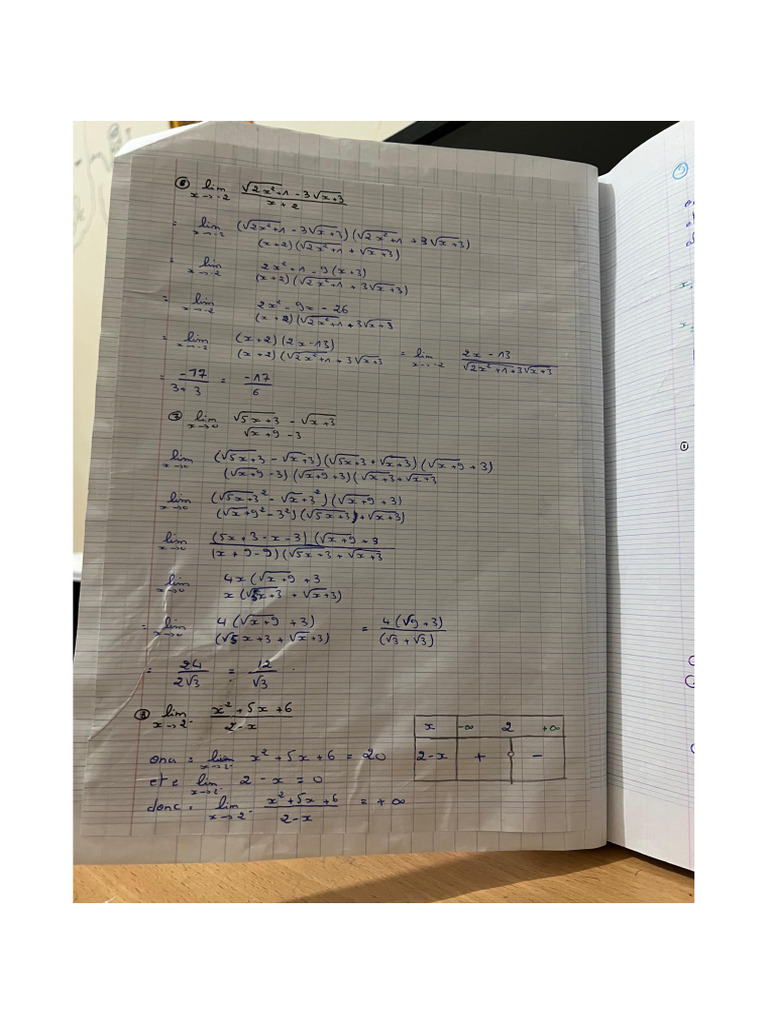 ⑥ lim x→-2 (√(2x²+1) - 3√(x+3)) / (x+2)
= lim x→-2 (√(2x²+1) - 3√(x+3))(√(2x²+1) + 3√(x+3)) / (x+2)(√(2x²+1) + √(x+3))
= lim x→-2 2x²+1-9(x+3) / (x+2)(√(2x²+1) + 3√(x+3))
= lim x→-2 2x²-9x-26 / (x+2)(√(2x²+1)+3√(x+3)
= lim x→-2 (x+2)(2x-13) / (x+2)(√(2x²+1)+3√(x+3) = lim x→-2 2x-13 / √(2x²+1)+3√(x+3)
= -17 / 3+3 = -17 / 6
⑦ lim x→0 √(5x+3) - √(x+3) / √(x+9) - 3
lim x→0 (√(5x+3) - √(x+3))(√(5x+3)+√(x+3))(√(x+9)+3) / (√(x+9)-3)(√(x+9)+3)(√(x+3)+√(x+3)
lim x→0 (√(5x+3)² - √(x+3)²)(√(x+9)+3) / (√(x+9)²-3²)(√(5x+3)+√(x+3))
lim x→0 (5x+3-x-3)(√(x+9)+3 / (x+9-9)(√(5x+3)+√(x+3)
lim x→0 4x(√(x+9)+3 / x(√(5x+3)+√(x+3))
= lim x→0 4(√(x+9)+3) / (√(5x+3)+√(x+3)) = 4(√9+3) / (√3+√3)
= 24 / 2√3 = 12 / √3
⑧ lim x→2⁻ x²+5x+6 / 2-x
x -∞ 2 +∞
2-x + 0 -
ona: lim x→2⁻ x²+5x+6 = 20
et: lim x→2⁻ 2-x = 0
donc: lim x→2⁻ x²+5x+6 / 2-x = +∞